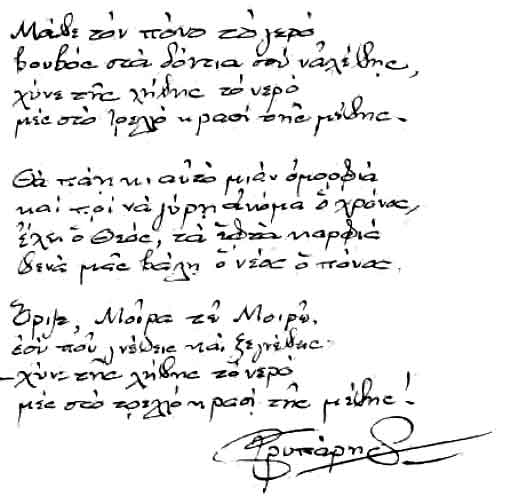 Μάθε τὸν πόνο τὸ γερὸ
βουβὸς στὰ δόντια σου ν' ἀλέθῃς,
χύνε τῆς λήθης τὸ νερὸ
μὲς στὸ τρελλὸ κρασὶ τῆς μέθης.
Θὰ πάῃ κι αὐτὸ μιὰν ὀμορφιὰ
καὶ πρὶ νὰ γύρῃ ἀκόμα ὁ χρόνος,
ἔχει ὁ Θεός, τὰ ἑφτὰ καρφιὰ
θενὰ μᾶς βάλῃ ὁ νέος ὁ πόνος.
Μοῖρα τῶ Μοιρῶ,
ἐσὺ ποὺ γνέθεις καὶ ξεγνέθεις
– χύνε τῆς λήθης τὸ νερὸ
μὲς στὸ τρελλὸ κρασὶ τῆς μέθης!
Γρυπάρης